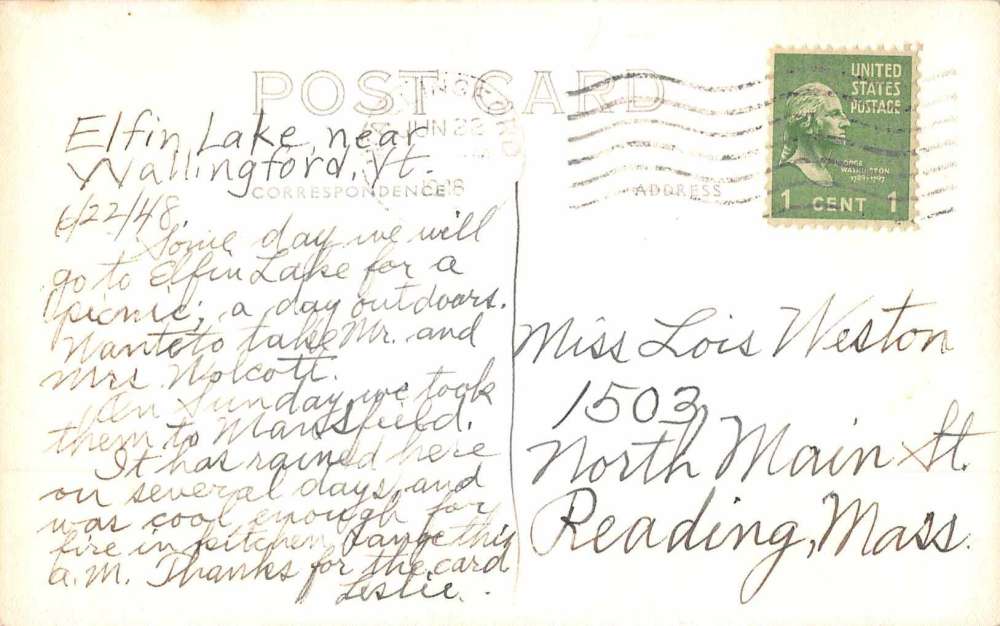 POST CARD
JUN 22
Elfin Lake, near
Wallingford, Vt.
CORRESPONDENCE
ADDRESS
UNITED
STATES
POSTAGE
WASHINGTON
1789-1797
1 CENT 1
6/22/48.
Some day we will
go to Elfin Lake for a
picnic; a day outdoors.
Want to take Mr. and
Mrs. Wolcott.
On Sunday, we took
them to Mansfield.
It has rained here
on several days, and
was cool enough for
fire in kitchen range this
a.m. Thanks for the card
Leslie.
Miss Lois Weston
1503
North Main St.
Reading, Mass.